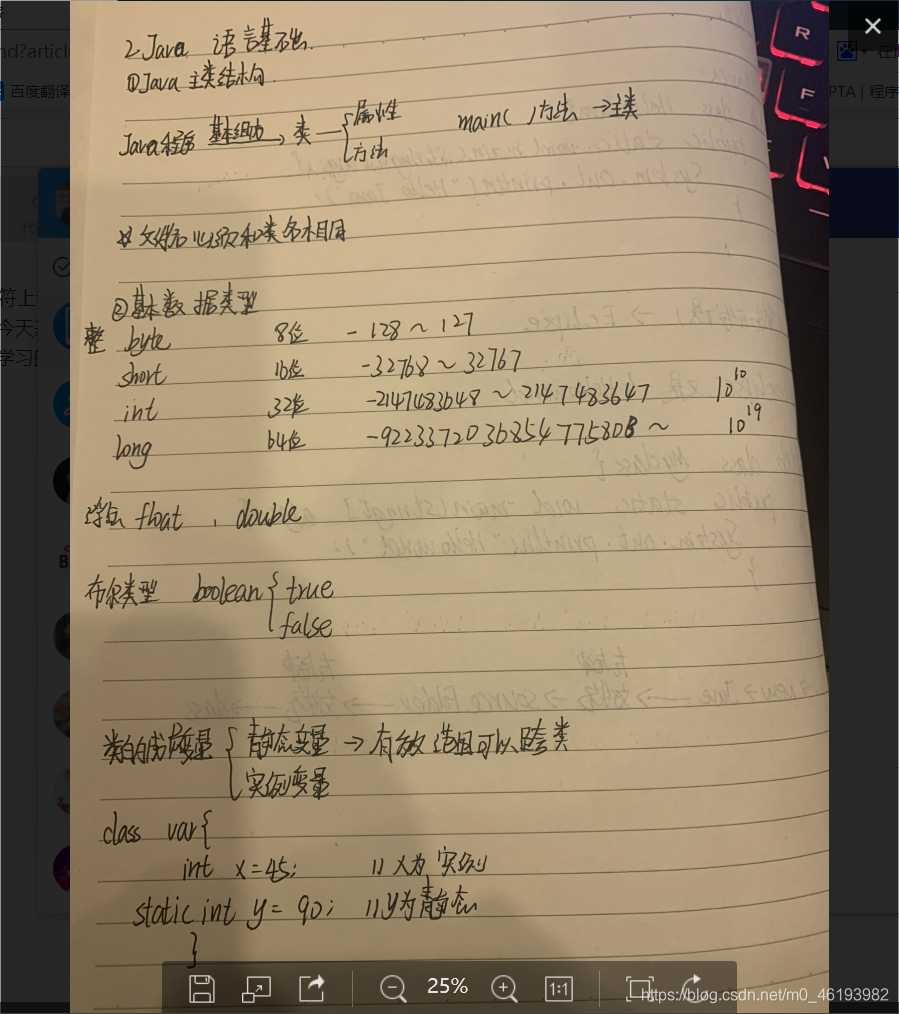 2.Java 语言基础.
①Java 主类结构
Java程序 基本组成 类 属性 方法 main( )方法 →主类
※ 文件名必须和类名相同
②基本数据类型
整 byte 8位 -128~127
short 16位 -32768~32767
int 32位 -2147483648~2147483647 10^10
long 64位 -9223372036854775808~ 10^19
浮点 float , double
布尔类型 boolean { true
false
类的成员变量 { 静态变量 → 有效范围可以跨类
实例变量
class var{
int x=45; //x为实例
static int y= 90; //y为静态
}
nd?article
百度翻译
PTA | 程序
在
符上
今天
学习的
25%
1:1
https://blog.csdn.net/m0_46193982
R
F